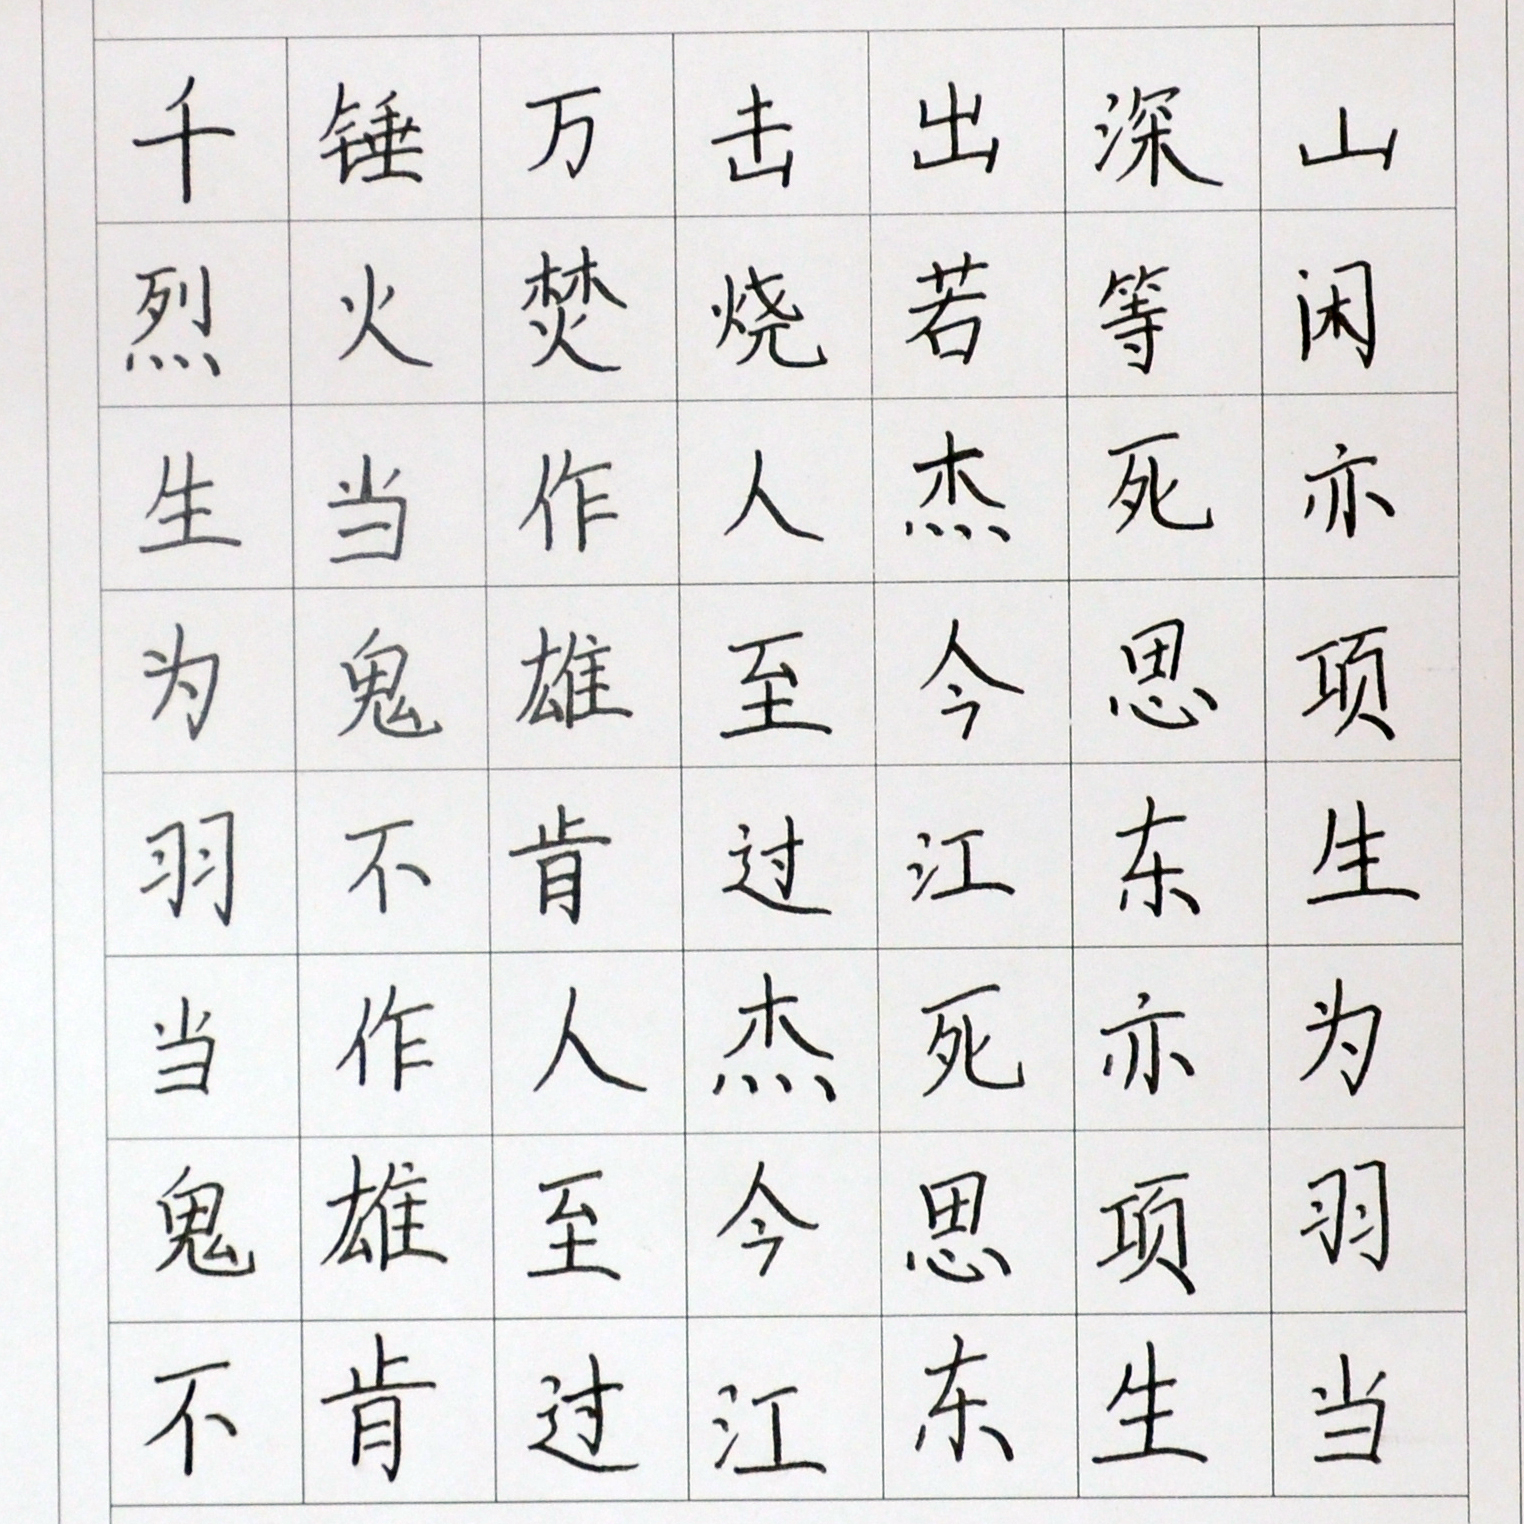 千锤万击出深山
烈火焚烧若等闲
生当作人杰死亦
为鬼雄至今思项
羽不肯过江东生
当作人杰死亦为
鬼雄至今思项羽
不肯过江东生当